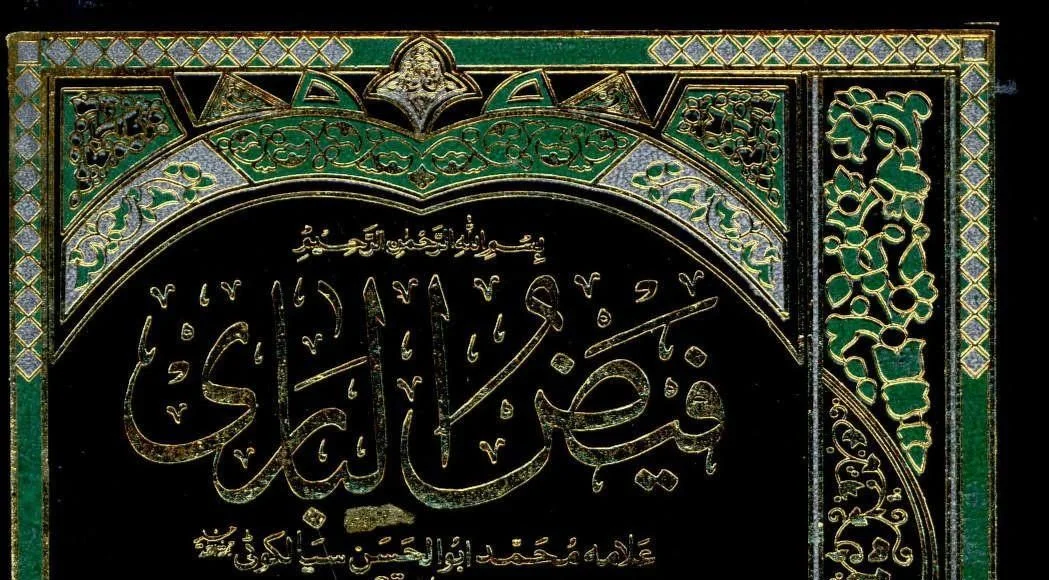 بِسْمِ اللهِ الرَّحْمٰنِ الرَّحِيْمِ
فیض الباری
علامہ محمد ابوالحسن سیالکوٹی